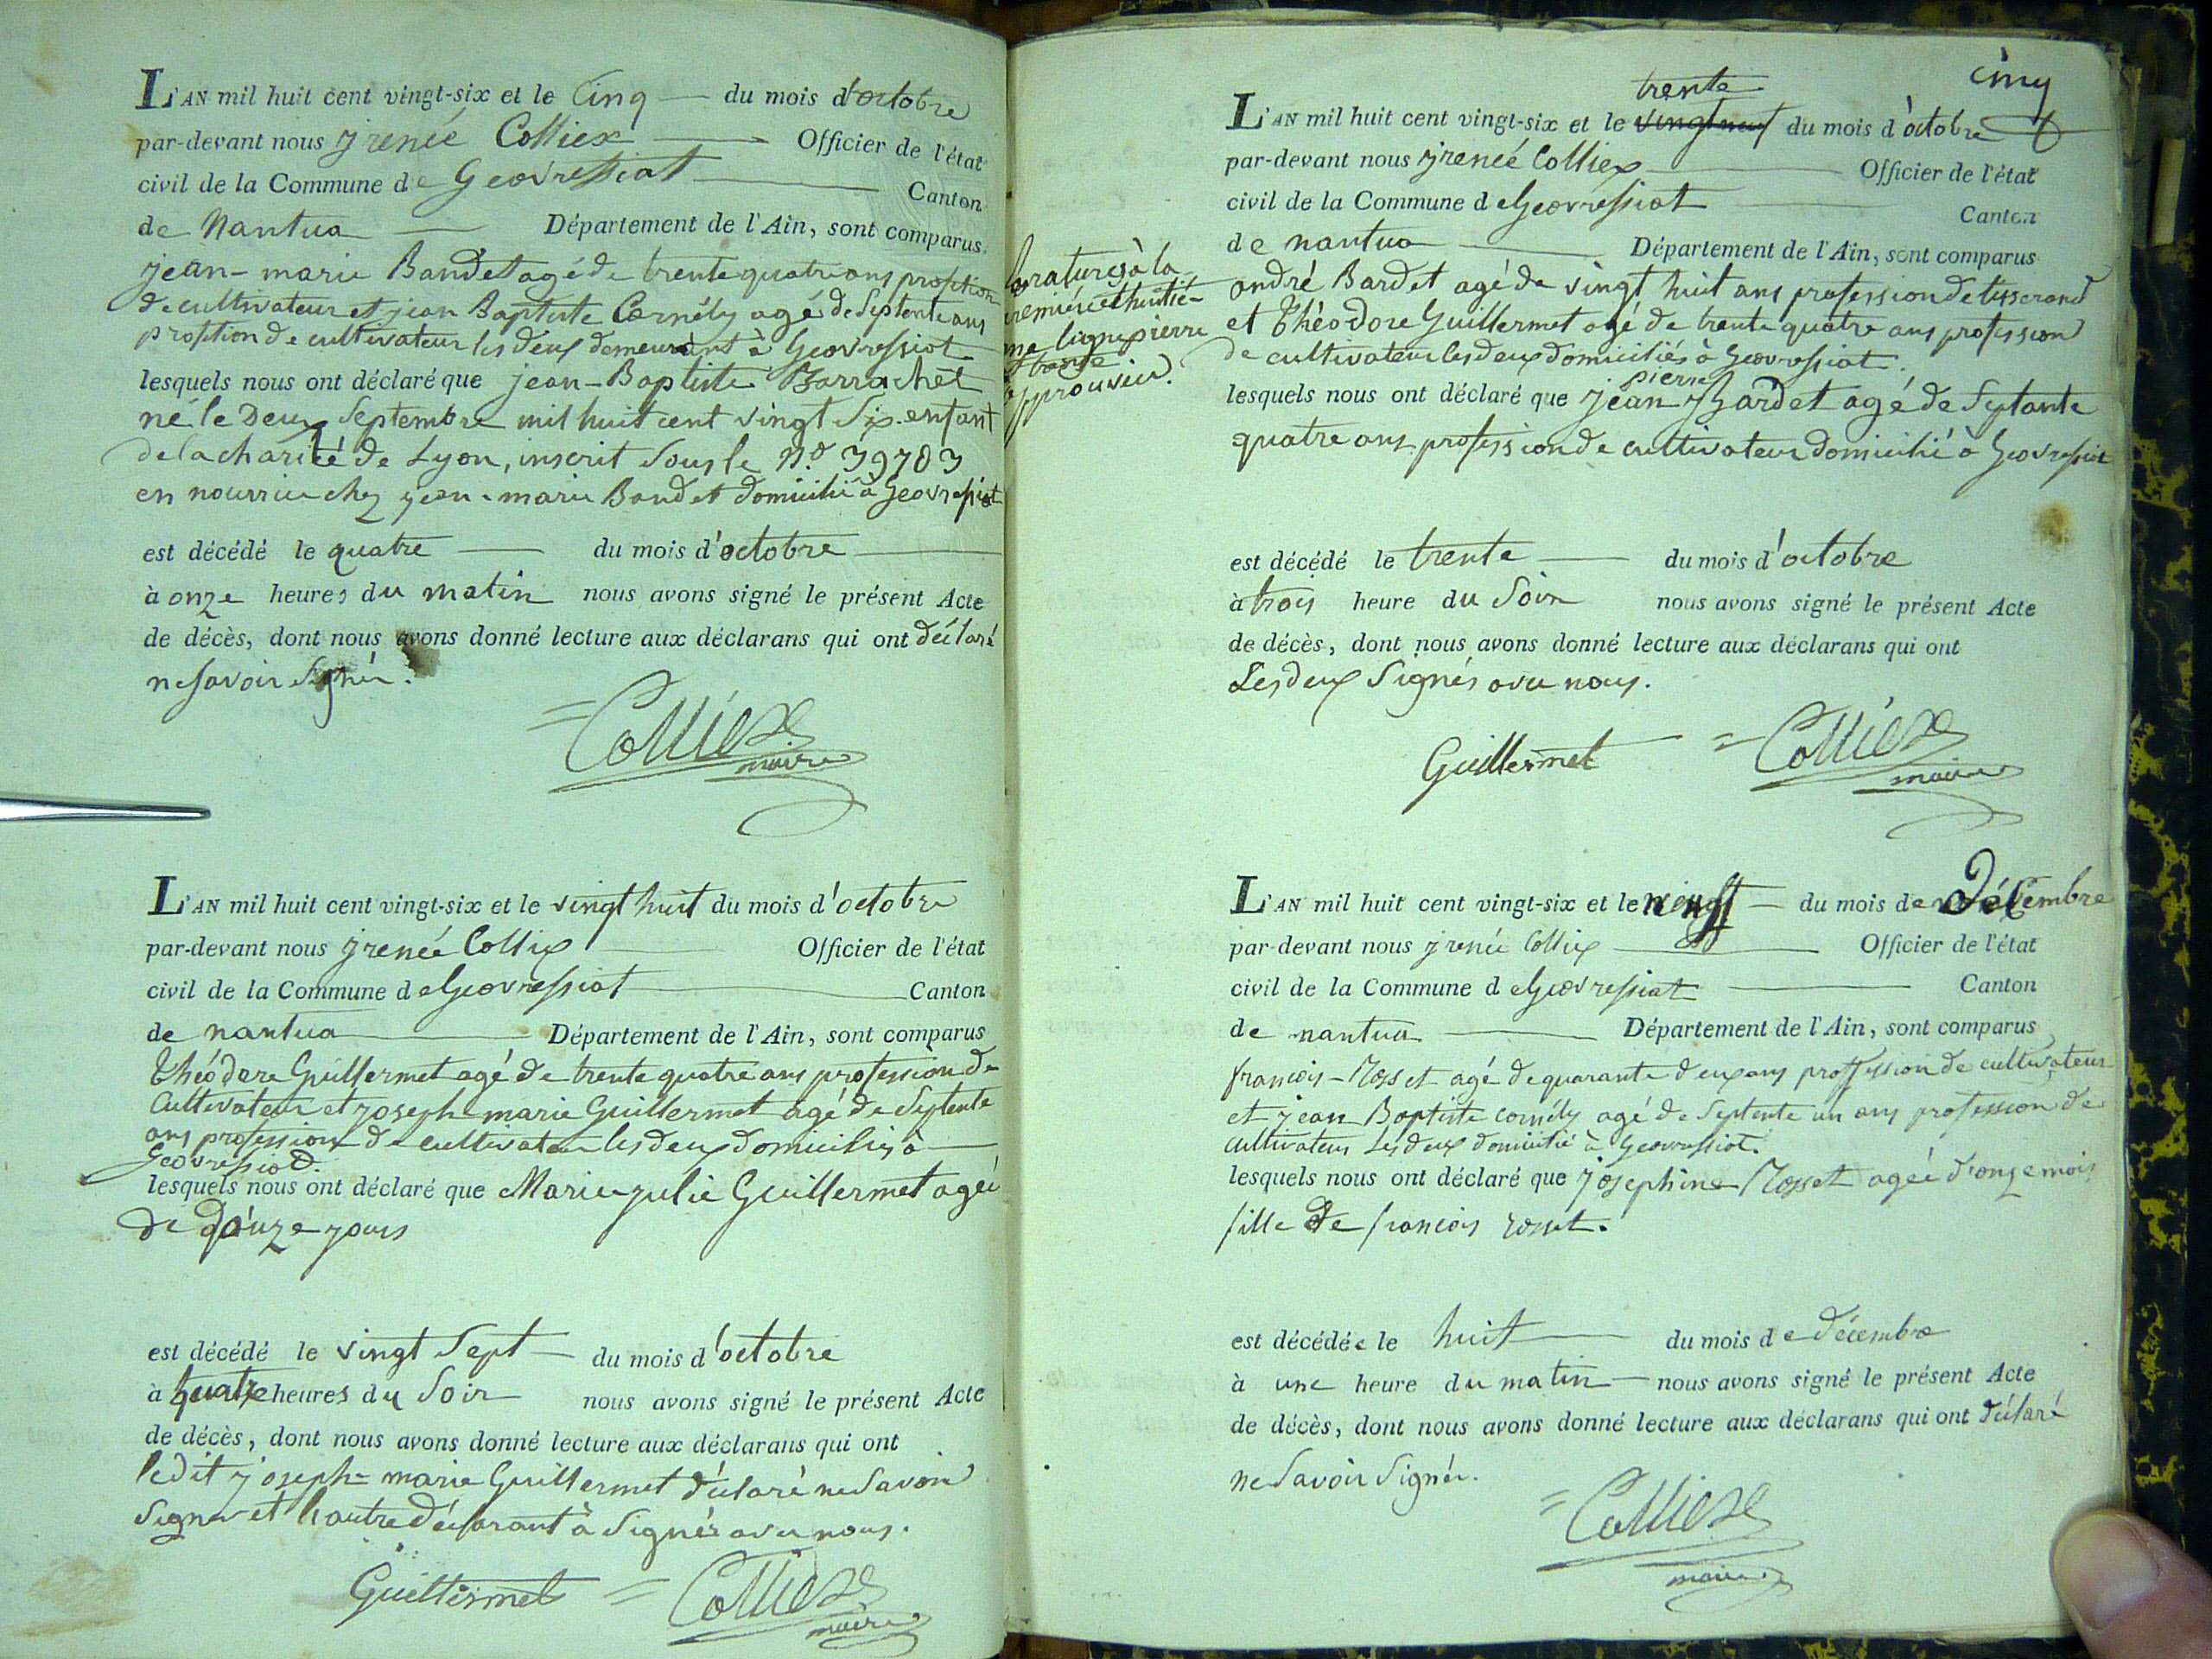 L'AN mil huit cent vingt-six et le Cinq du mois d'octobre
par-devant nous jrenée Colliex Officier de l'état
civil de la Commune de Geovressiat Canton
de Nantua Département de l'Ain, sont comparus
jean-marie Baudet agé de trente quatre ans profition
de cultivateur et jean Baptiste Cornély agé de Septente ans
profition de cultivateur les deux demeurant à Geovressiat
lesquels nous ont déclaré que jean-Baptiste Barrachet
né le Deux Septembre mil huit cent vingt Six enfant
de la charité de Lyon, inscrit Sous le N.o 39783
en nourrice chez jean-marie Baudet domicilié à Geovressiat
est décédé le quatre du mois d'octobre
à onze heures du matin nous avons signé le présent Acte
de décès, dont nous avons donné lecture aux déclarans qui ont déclaré
ne savoir Signér.
Colliex
maire
L'AN mil huit cent vingt-six et le vingt huit du mois d'octobre
par-devant nous jrenée Colliex Officier de l'état
civil de la Commune de Geovressiat Canton
de nantua Département de l'Ain, sont comparus
Théodore Guillermet agé de trente quatre ans profession de
Cultivateur et joseph-marie Guillermet agé de Septente
ans profession de cultivateur les deux domiciliés à
Geovressiat.
lesquels nous ont déclaré que Marie-julie Guillermet agée
de douze jours
est décédé le vingt Sept du mois d'octobre
à quatre heures du Soir nous avons signé le présent Acte
de décès, dont nous avons donné lecture aux déclarans qui ont
ledit joseph-marie Guillermet déclaré ne Savoir
Signer et l'autre déclarant à Signés avec nous.
Guillermet Colliex
maire
cinq
trente
L'AN mil huit cent vingt-six et le vingt neuf du mois d'octobre
par-devant nous jrenée Colliex Officier de l'état
civil de la Commune de Geovressiat Canton
de nantua Département de l'Ain, sont comparus
andré Bardet agé de vingt huit ans profession de tisserand
et Théodore Guillermet agé de trente quatre ans profession
de cultivateur les deux domiciliés à Geovressiat.
pierre
lesquels nous ont déclaré que jean Bardet agé de Septante
quatre ans profession de cultivateur domicilié à Geovressiat
ratures à la
première et huitiè-
me ligne pierre
trente
approuvées.
est décédé le trente du mois d'octobre
à trois heure du Soir nous avons signé le présent Acte
de décès, dont nous avons donné lecture aux déclarans qui ont
Les deux Signés avec nous.
Guillermet Colliex
maire
L'AN mil huit cent vingt-six et le neuf du mois de Décembre
par-devant nous jrenée Colliex Officier de l'état
civil de la Commune de Geovressiat Canton
de nantua Département de l'Ain, sont comparus
francois-Rosset agé de quarante deux ans proffession de cultivateur
et jean Baptiste cornély agé de Septente un ans profession de
cultivateur Les deux domicilié à Geovressiat.
lesquels nous ont déclaré que josephine Rosset agée d'onze mois
fille de francois rosset.
est décédée le huit du mois de décembre
à une heure du matin nous avons signé le présent Acte
de décès, dont nous avons donné lecture aux déclarans qui ont déclaré
ne Savoir Signér.
Colliex
maire